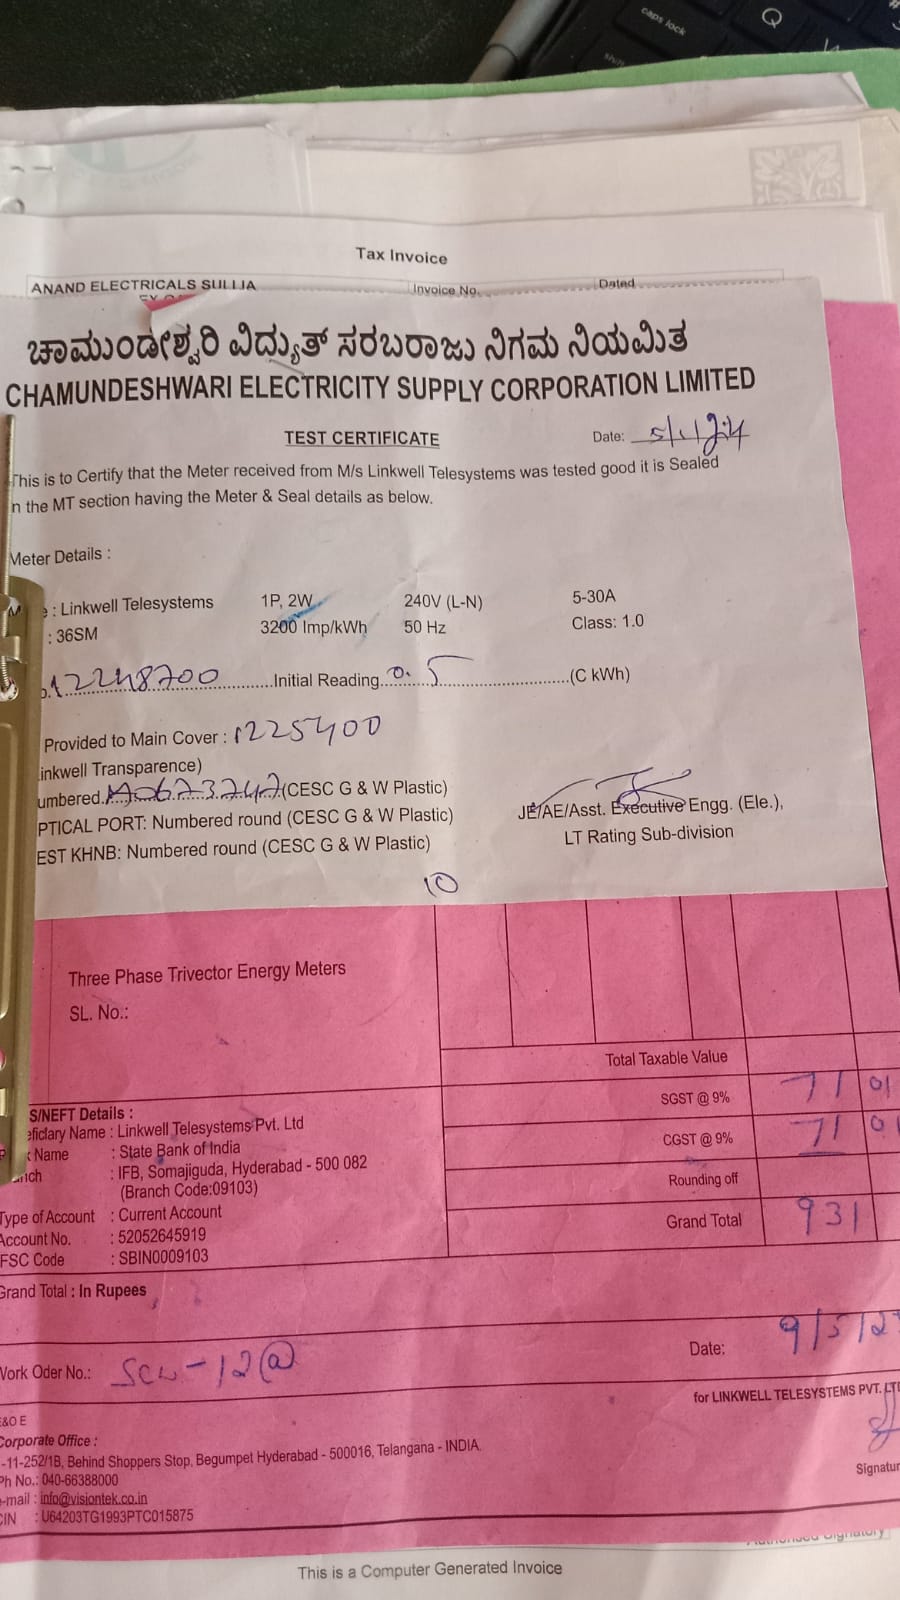 caps lock
Q
Tax Invoice
ANAND ELECTRICALS SULLIA
Invoice No.
Dated
ಚಾಮುಂಡೇಶ್ವರಿ ವಿದ್ಯುತ್ ಸರಬರಾಜು ನಿಗಮ ನಿಯಮಿತ
CHAMUNDESHWARI ELECTRICITY SUPPLY CORPORATION LIMITED
TEST CERTIFICATE
Date: 5/1/24
This is to Certify that the Meter received from M/s Linkwell Telesystems was tested good it is Sealed
n the MT section having the Meter & Seal details as below.
Meter Details :
: Linkwell Telesystems 1P, 2W 240V (L-N) 5-30A
: 36SM 3200 Imp/kWh 50 Hz Class: 1.0
12248700 Initial Reading 0.5 (C kWh)
Provided to Main Cover : 1225400
inkwell Transparence)
umbered. (CESC G & W Plastic)
PTICAL PORT: Numbered round (CESC G & W Plastic)
EST KHNB: Numbered round (CESC G & W Plastic)
JE/AE/Asst. Executive Engg. (Ele.),
LT Rating Sub-division
10
Three Phase Trivector Energy Meters
SL. No.:
Total Taxable Value
SGST @ 9% 71 01
CGST @ 9% 71 01
Rounding off
Grand Total 931
S/NEFT Details :
eficiary Name : Linkwell Telesystems Pvt. Ltd
k Name : State Bank of India
: IFB, Somajiguda, Hyderabad - 500 082
(Branch Code:09103)
Type of Account : Current Account
Account No. : 52052645919
FSC Code : SBIN0009103
Grand Total : In Rupees
Work Oder No.:
Date: 9/5/2
for LINKWELL TELESYSTEMS PVT. LTD
&O E
Corporate Office :
-11-252/1B, Behind Shoppers Stop, Begumpet Hyderabad - 500016, Telangana - INDIA.
Ph No.: 040-66388000
e-mail : info@visiontek.co.in
CIN : U64203TG1993PTC015875
Signatur
This is a Computer Generated Invoice